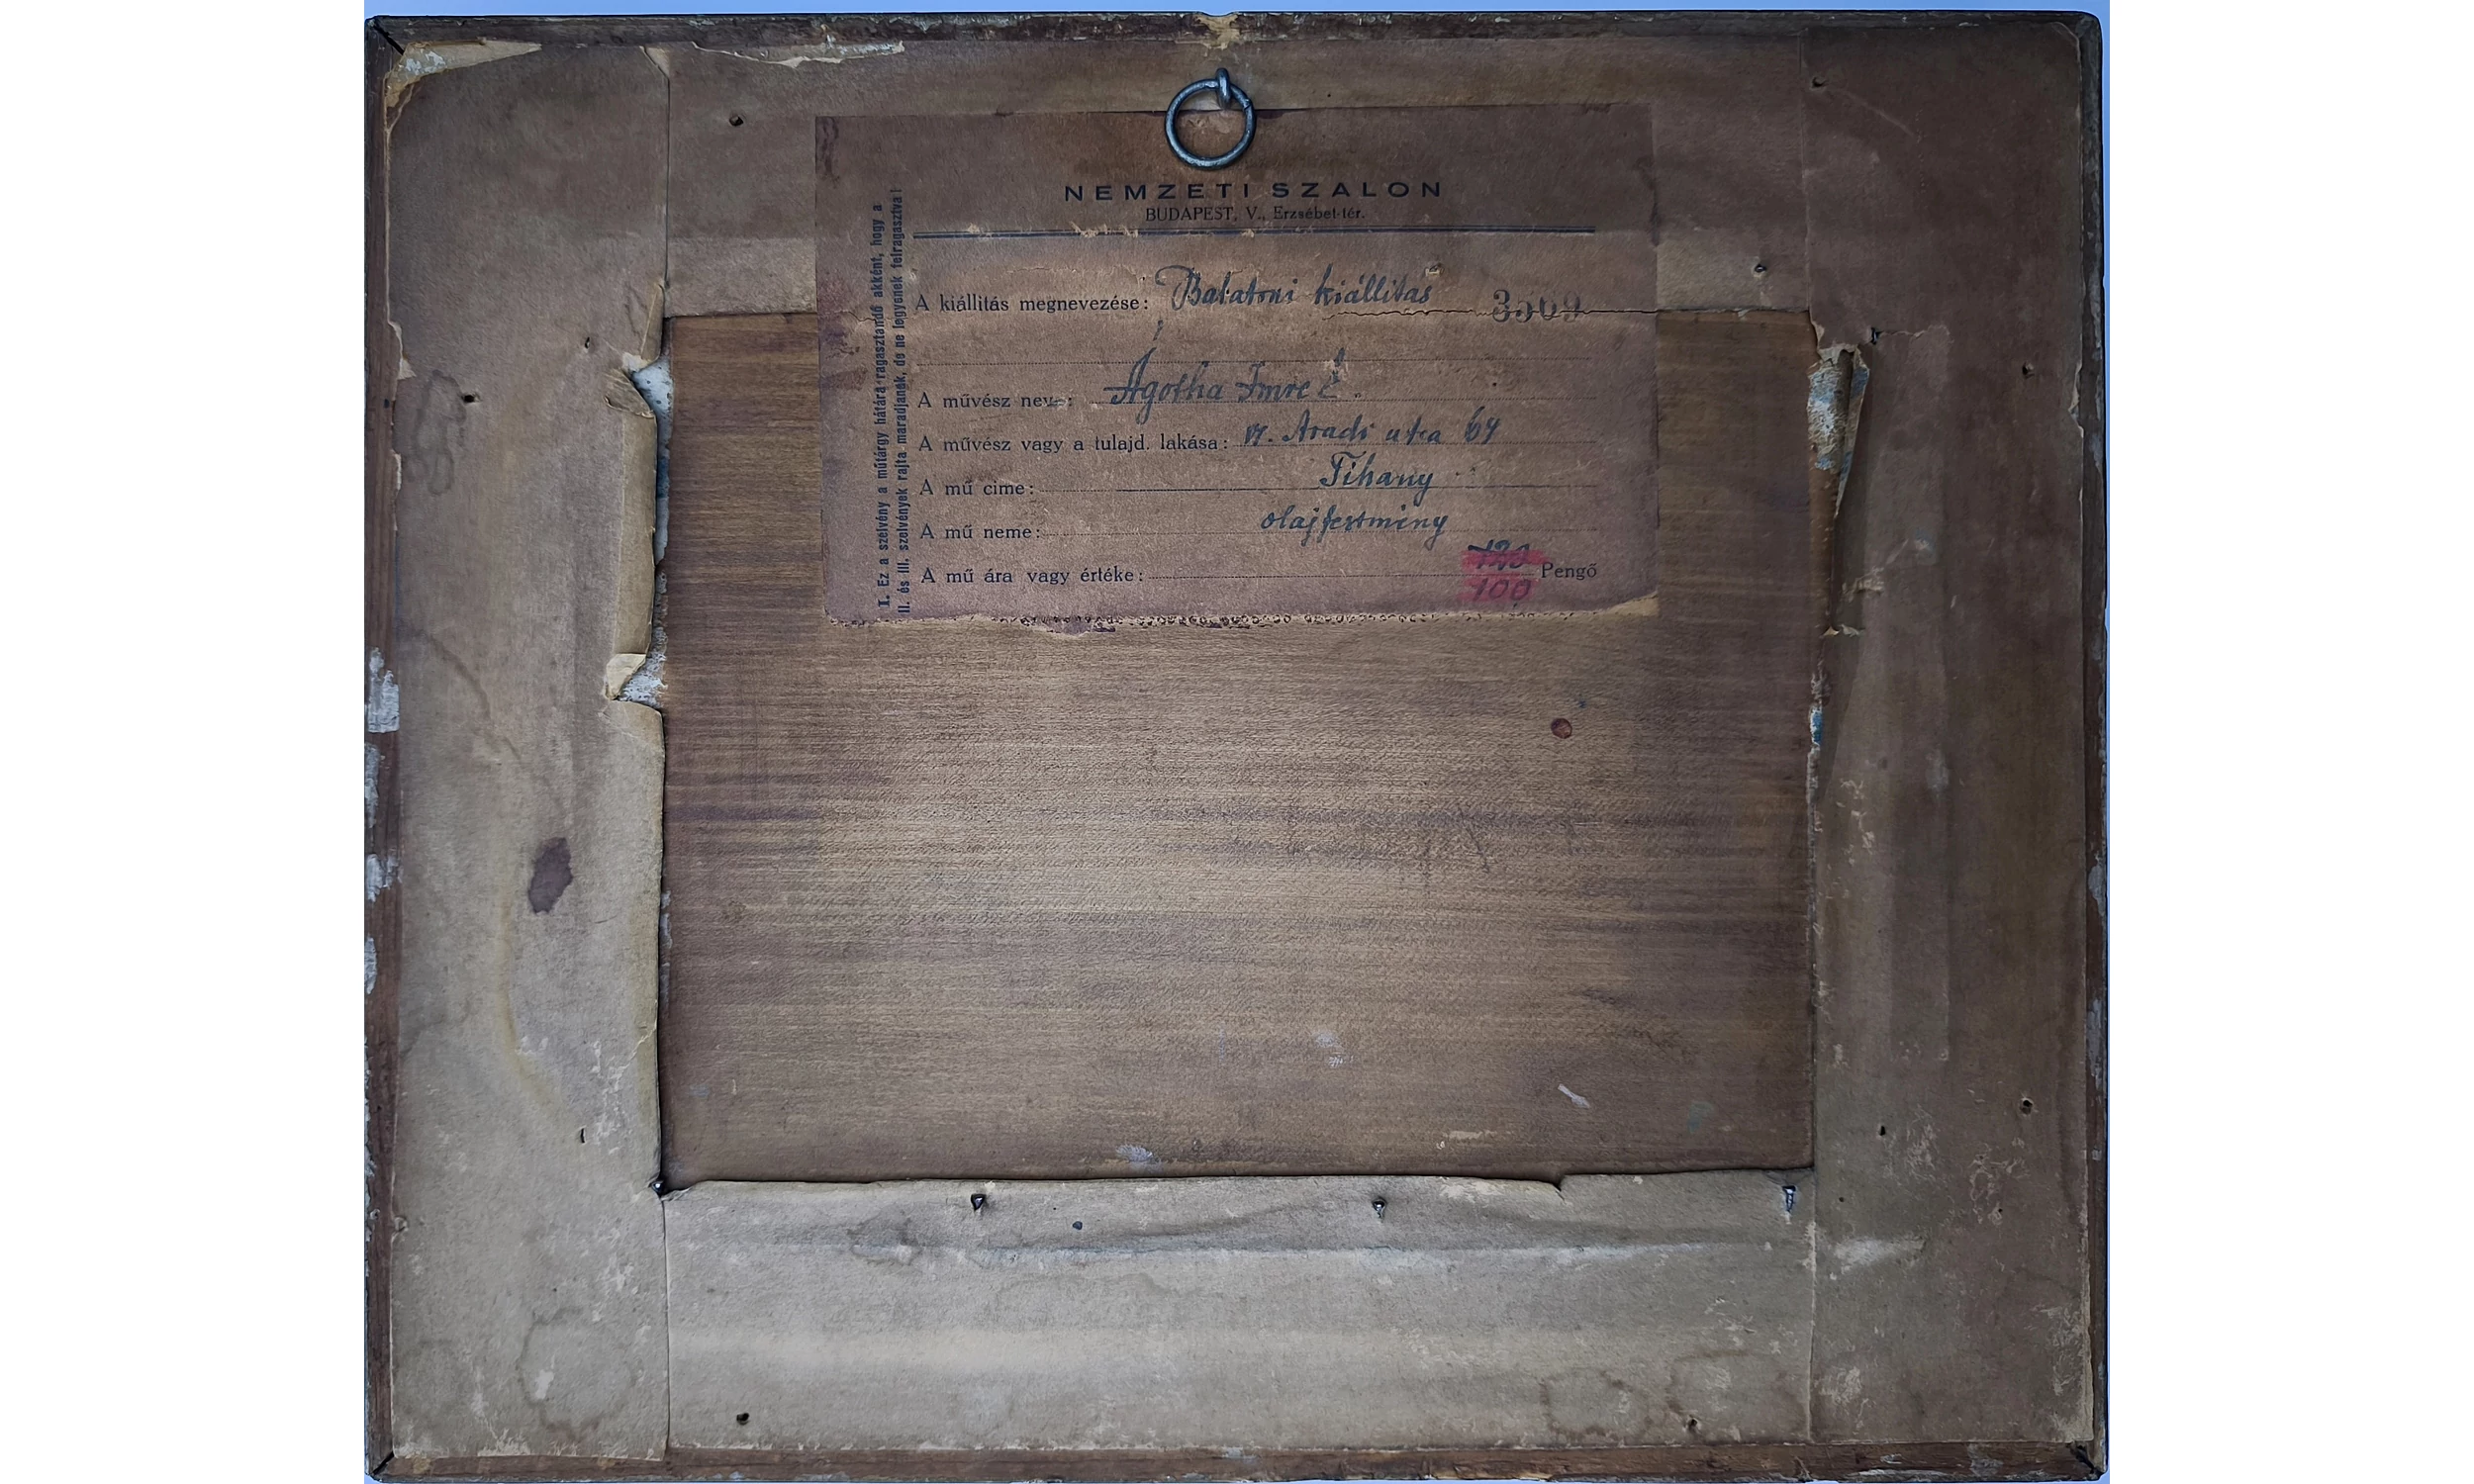 NEMZETI SZALON
BUDAPEST, V., Erzsébet-tér.
A kiállitás megnevezése: Balatoni kiállitás 3509
A művész neve: Ágotha Imre E.
A művész vagy a tulajd. lakása: VI. Aradi utca 64
A mű cime: Tihany
A mű neme: olajfestmény
120
A mű ára vagy értéke: Pengő
100
I. Ez a szelvény a műtárgy hátára ragasztandó akként, hogy a
II. és III. szelvények rajta maradjanak, de ne legyenek felragasztva!